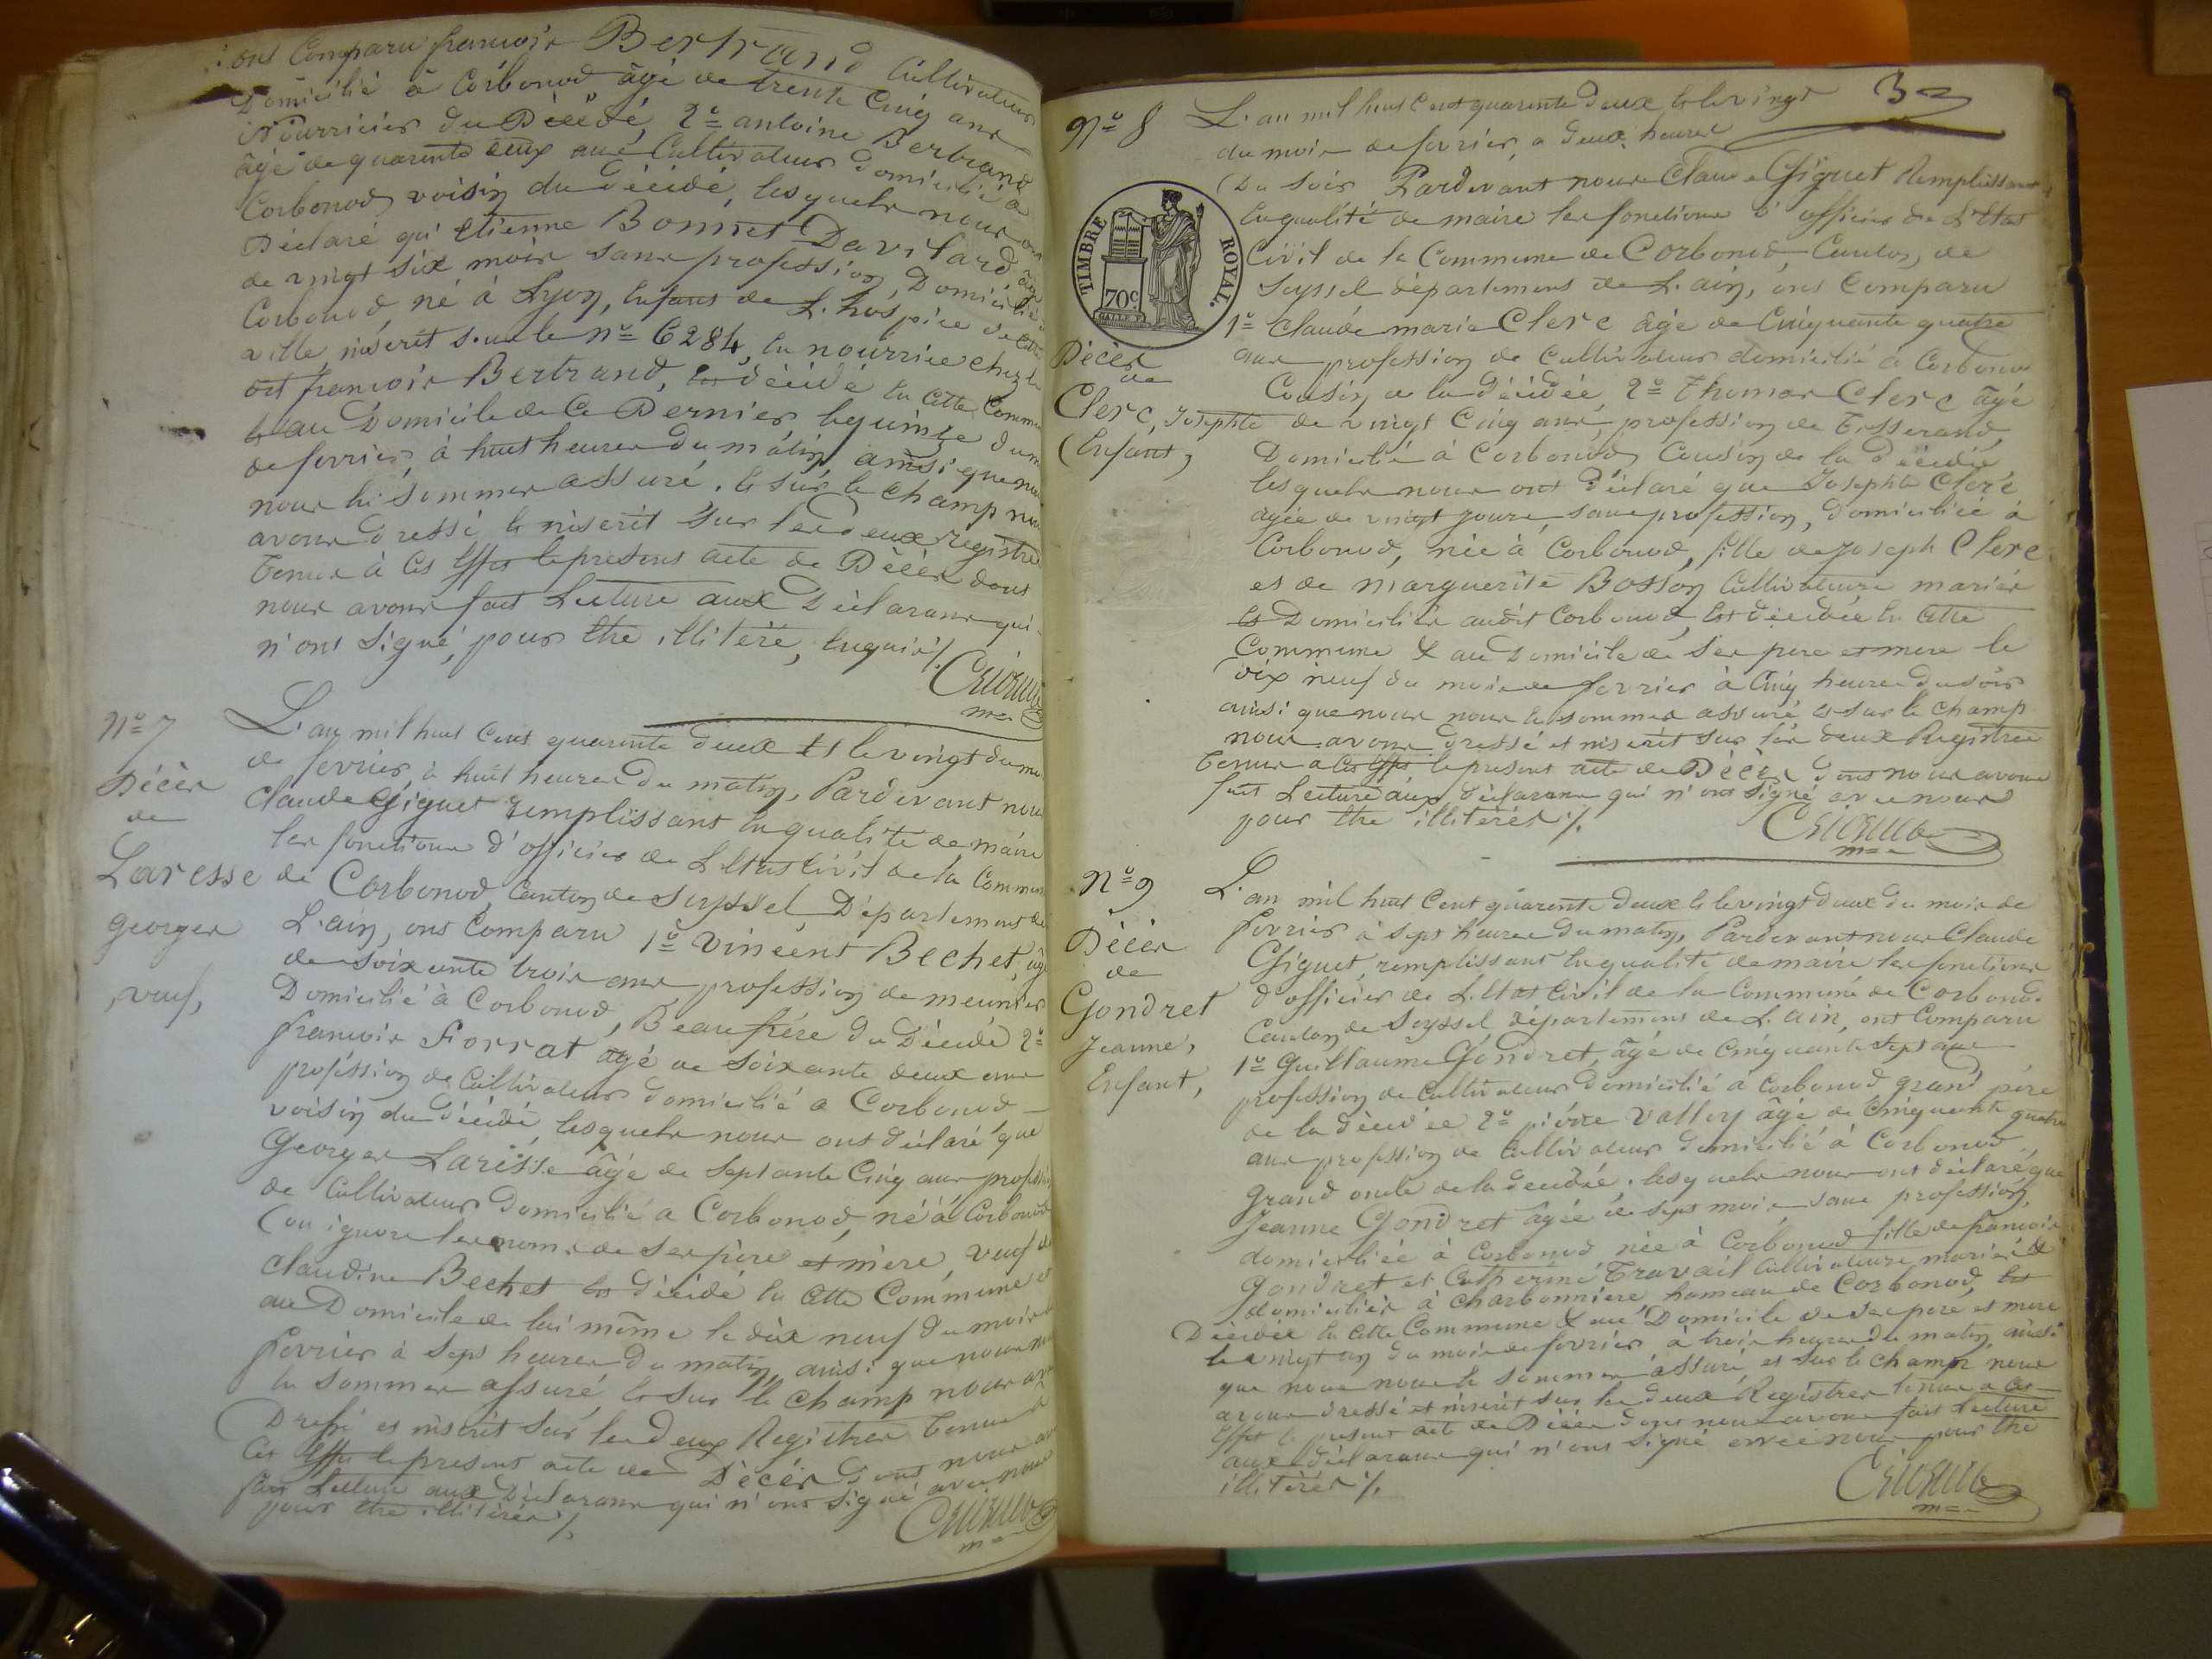 ont Comparu francois Bertrand Cultivateur
Domicilié à Corbonod âgé de trente Cinq ans
Nourricier du Décédé, 2º antoine Bertrand
âgé de quarante deux ans Cultivateur domicilié à
Corbonod voisin du décédé, lesquels nous ont
Déclaré qu'Etienne Bonnet Davitard, âgé
de vingt six mois sans profession, Domicilié à
Corbonod, né à Lyon, Enfant de L'hospice de cette
ville inscrit sous le nº 6284, En nourrice chez le
dit francois Bertrand, Est décédé En Cette Commune
et au Domicile de Ce Dernier, le quinze du mois
de fevrier, à huit heures du matin, ainsi que nous
nous En sommes assuré. Et sur le champ nous
avons dressé et inscrit sur les deux registres
Tenus à Ces Effet le present acte de Décès dont
nous avons fait Lecture aux Déclarans qui
n'ont Signé, pour Etre illitéré, Enquis ./.
m=e
Nº 7
Décès
de
Laresse
Georges
veuf,
L'an mil huit Cent quarante deux Et le vingt du mois
de fevrier, à huit heures du matin, Pardevant nous
Claude Giguet remplissant En qualité de maire
les fonctions d'officier de L'Etat Civil de la Commune
de Corbonod, Canton de Seyssel Département de
L'ain, ont Comparu 1º Vincent Bechet, âgé
de soixante trois ans profession de meunier
Domicilié à Corbonod, Beaufrére du Décédé 2º
francois Forrat agé de Soixante deux ans
proféssion de Cultivateur domicilié a Corbonod
voisin du décédé, lesquels nous ont déclaré que
Georges Larésse âgé de Septante Cinq ans profession
de Cultivateur domicilié a Corbonod, né à Corbonod
(on ignore les noms de Ses père et mère, veuf de
Claudine Bechet Est décédé En Cette Commune et
au Domicile de lui même le dix neuf du mois de
fevrier à Sept heures du matin, ainsi que nous nous
En sommes assuré, Et sur le champ nous avons
Dressé et inscrit Sur les deux Registres Tenus à
Ces Effet le present acte de Décès dont nous avons
fait Lecture aux Déclarans qui n'ont Signé avec nous
pour Etre illitérés ./.
m=e
3
Nº 8
TIMBRE ROYAL.
70c
Décès
de
Clerc, Josephte
(Enfant,
L'an mil huit Cent quarante deux Et le vingt
du mois de fevrier, a deux heures
(Du Soir Pardevant nous Claude Giguet Remplissant
En qualité de maire les fonctions d'officier de L'Etat
Civil de la Commune de Corbonod Canton, de
Seyssel département de L'ain, ont Comparu
1º Claude marie Clerc âgé de Cinquante quatre
ans profession de Cultivateur domicilié à Corbonod
Cousin de la décédée, 2º Thomas Clerc âgé
de vingt Cinq ans profession de Tisserand,
Domicilié à Corbonod, Cousin de la décédée
lesquels nous ont déclaré que Josephte Clerc
agée de vingt jours, sans profession, domiciliée à
Corbonod, née à Corbonod, fille de Joseph Clerc
et de marguerite Bosson Cultivateurs mariés
Et Domiciliés audit Corbonod, Est décédée En Cette
Commune & au Domicile de Ses pere et mere le
dix neuf du mois de fevrier à Cinq heures du soir
ainsi que nous nous En sommes assuré Et sur le champ
nous avons dressé et inscrit sur les deux Registres
Tenus a Ces Effet le present acte de Décès dont nous avons
fait Lecture aux déclarans qui n'ont Signé avec nous
pour Etre illitérés ./.
m=e
Nº 9
Décès
de
Gondret
Jeanne,
Enfant,
L'an mil huit Cent quarante deux Et le vingt deux du mois de
fevrier à Sept heures du matin, Pardevant nous Claude
Giguet, remplissant En qualité de maire les fonctions
d'officier de L'Etat Civil de la Commune de Corbonod
Canton de Seyssel, département de L'ain, ont Comparu
1º Guillaume Gondret, âgé de Cinquante Sept ans
profession de Cultivateur domicilié à Corbonod grand père
de la décédée 2º pierre Vallery âgé de Cinquante quatre
ans profession de Cultivateur domicilié à Corbonod
Grand oncle de la decedée. lesquels nous ont déclaré que
Jeanne Gondret âgée de Sept mois sans profession,
domiciliée à Corbonod née à Corbonod fille de francois
Gondret et Catherine Travail Cultivateurs mariés &
domiciliés à Charbonniere hameau de Corbonod, Est
Décédée En Cette Commune & au Domicile de Ses pere et mere
le vingt un du mois de fevrier à trois heures de matin, ainsi
que nous nous En sommes assuré, et sur le champ nous
avons dressé et inscrit sur les deux Registres tenus a Ces
Effet le present acte de Décès dont nous avons fait Lecture
aux déclarans qui n'ont Signé avec nous pour Etre
illitérés ./.
m=e